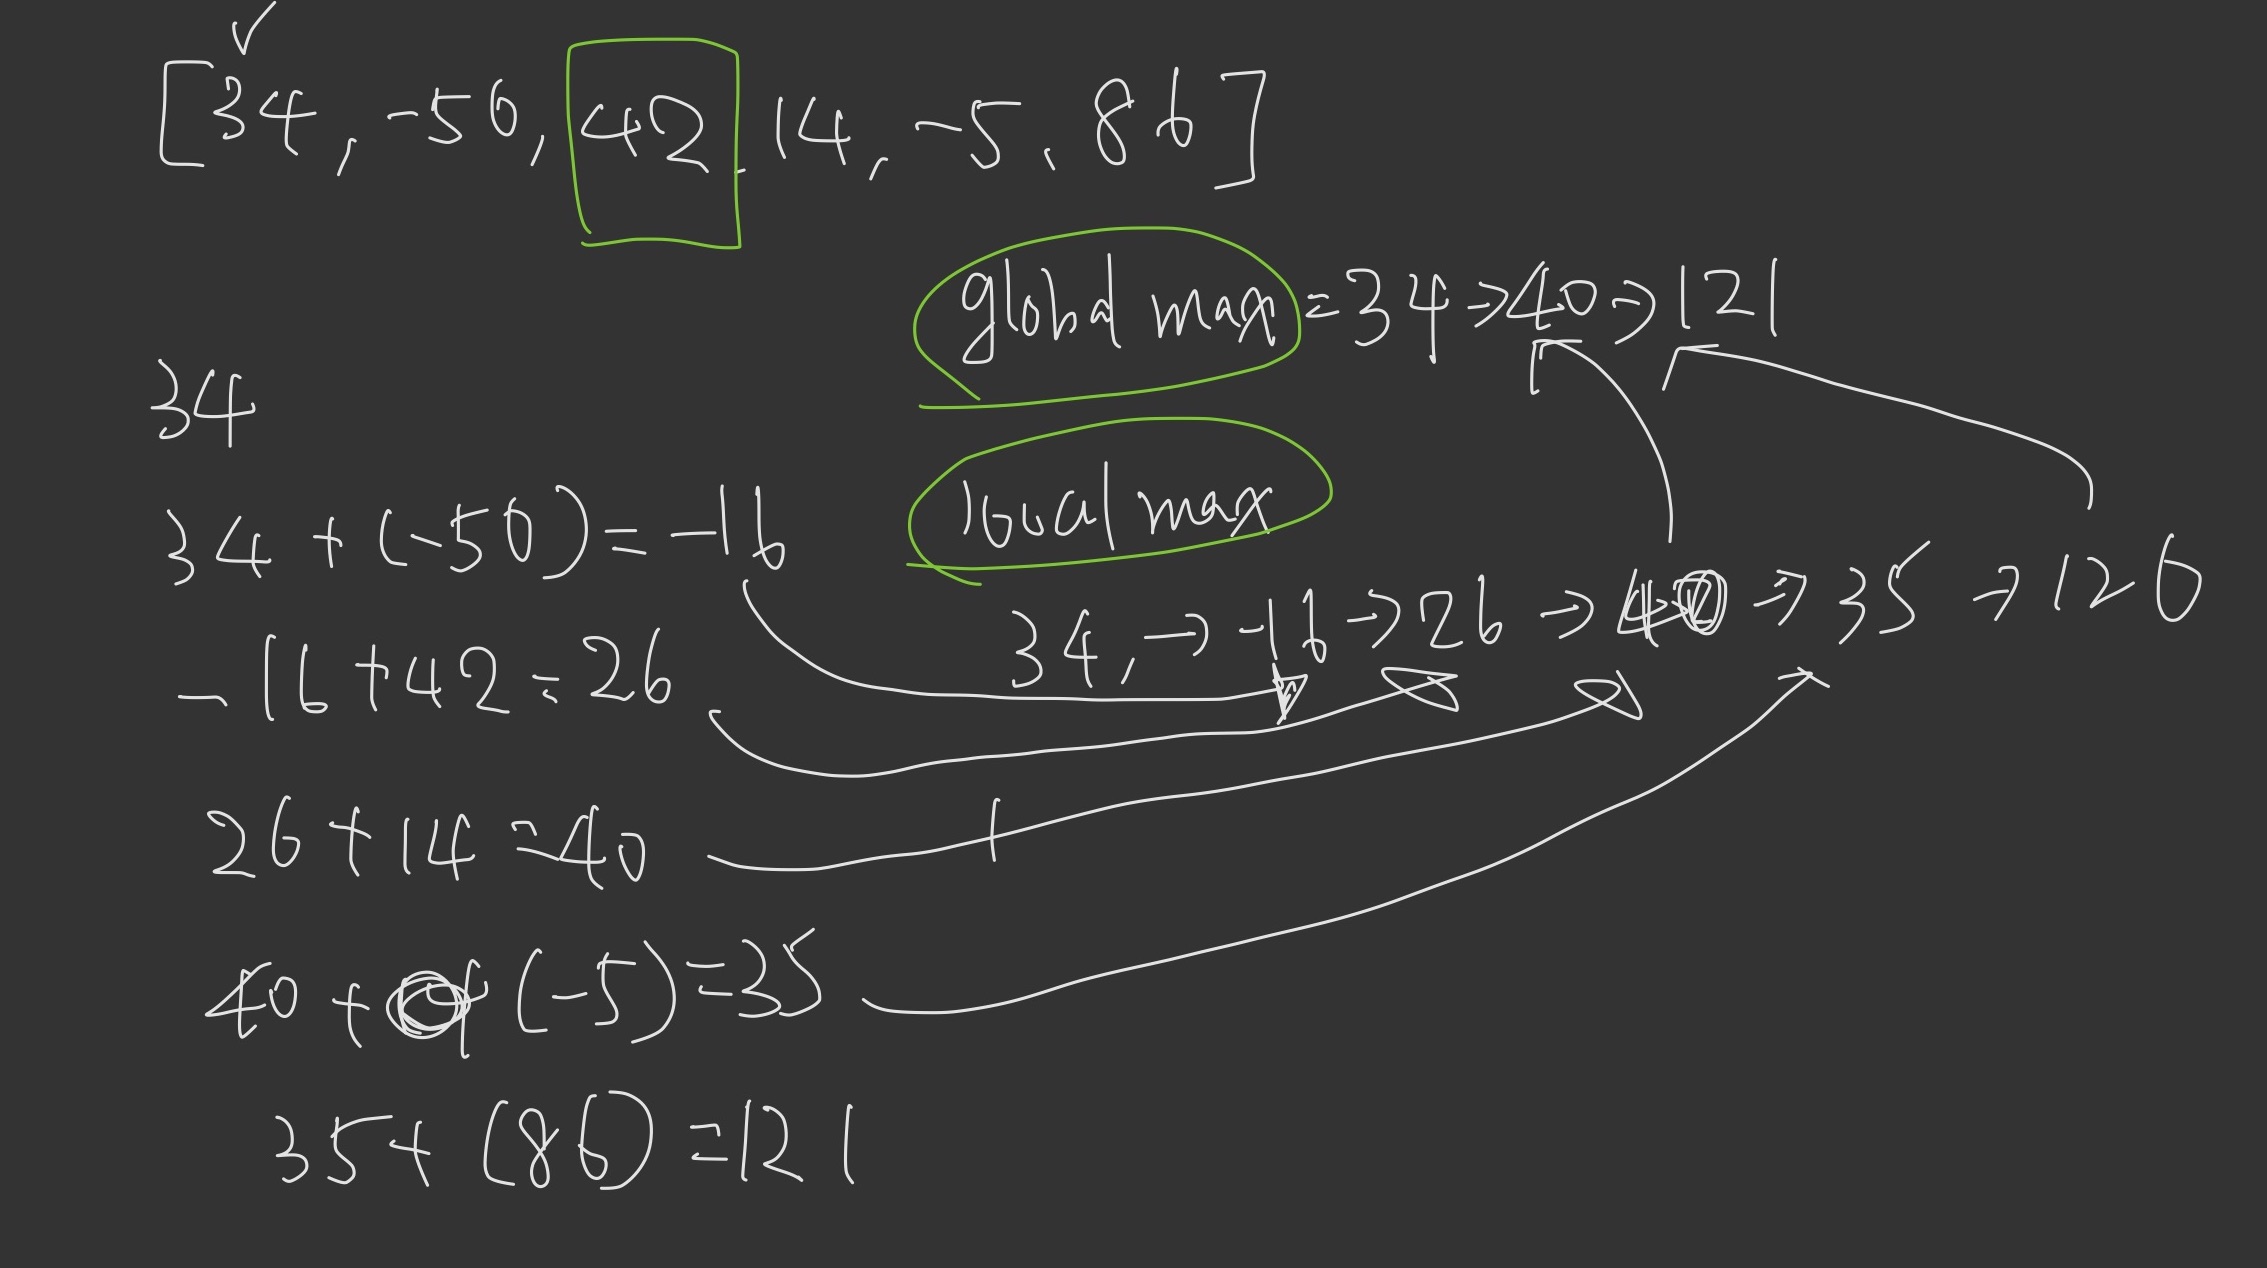 [34, -50, 42, 14, -5, 86]
global max = 34 → 40 → 121
34
local max
34 + (-50) = -16
34, → -16 → 26 → 40 → 35 → 120
-16 + 42 = 26
26 + 14 = 40
40 + (-5) = 35
35 + (86) = 121